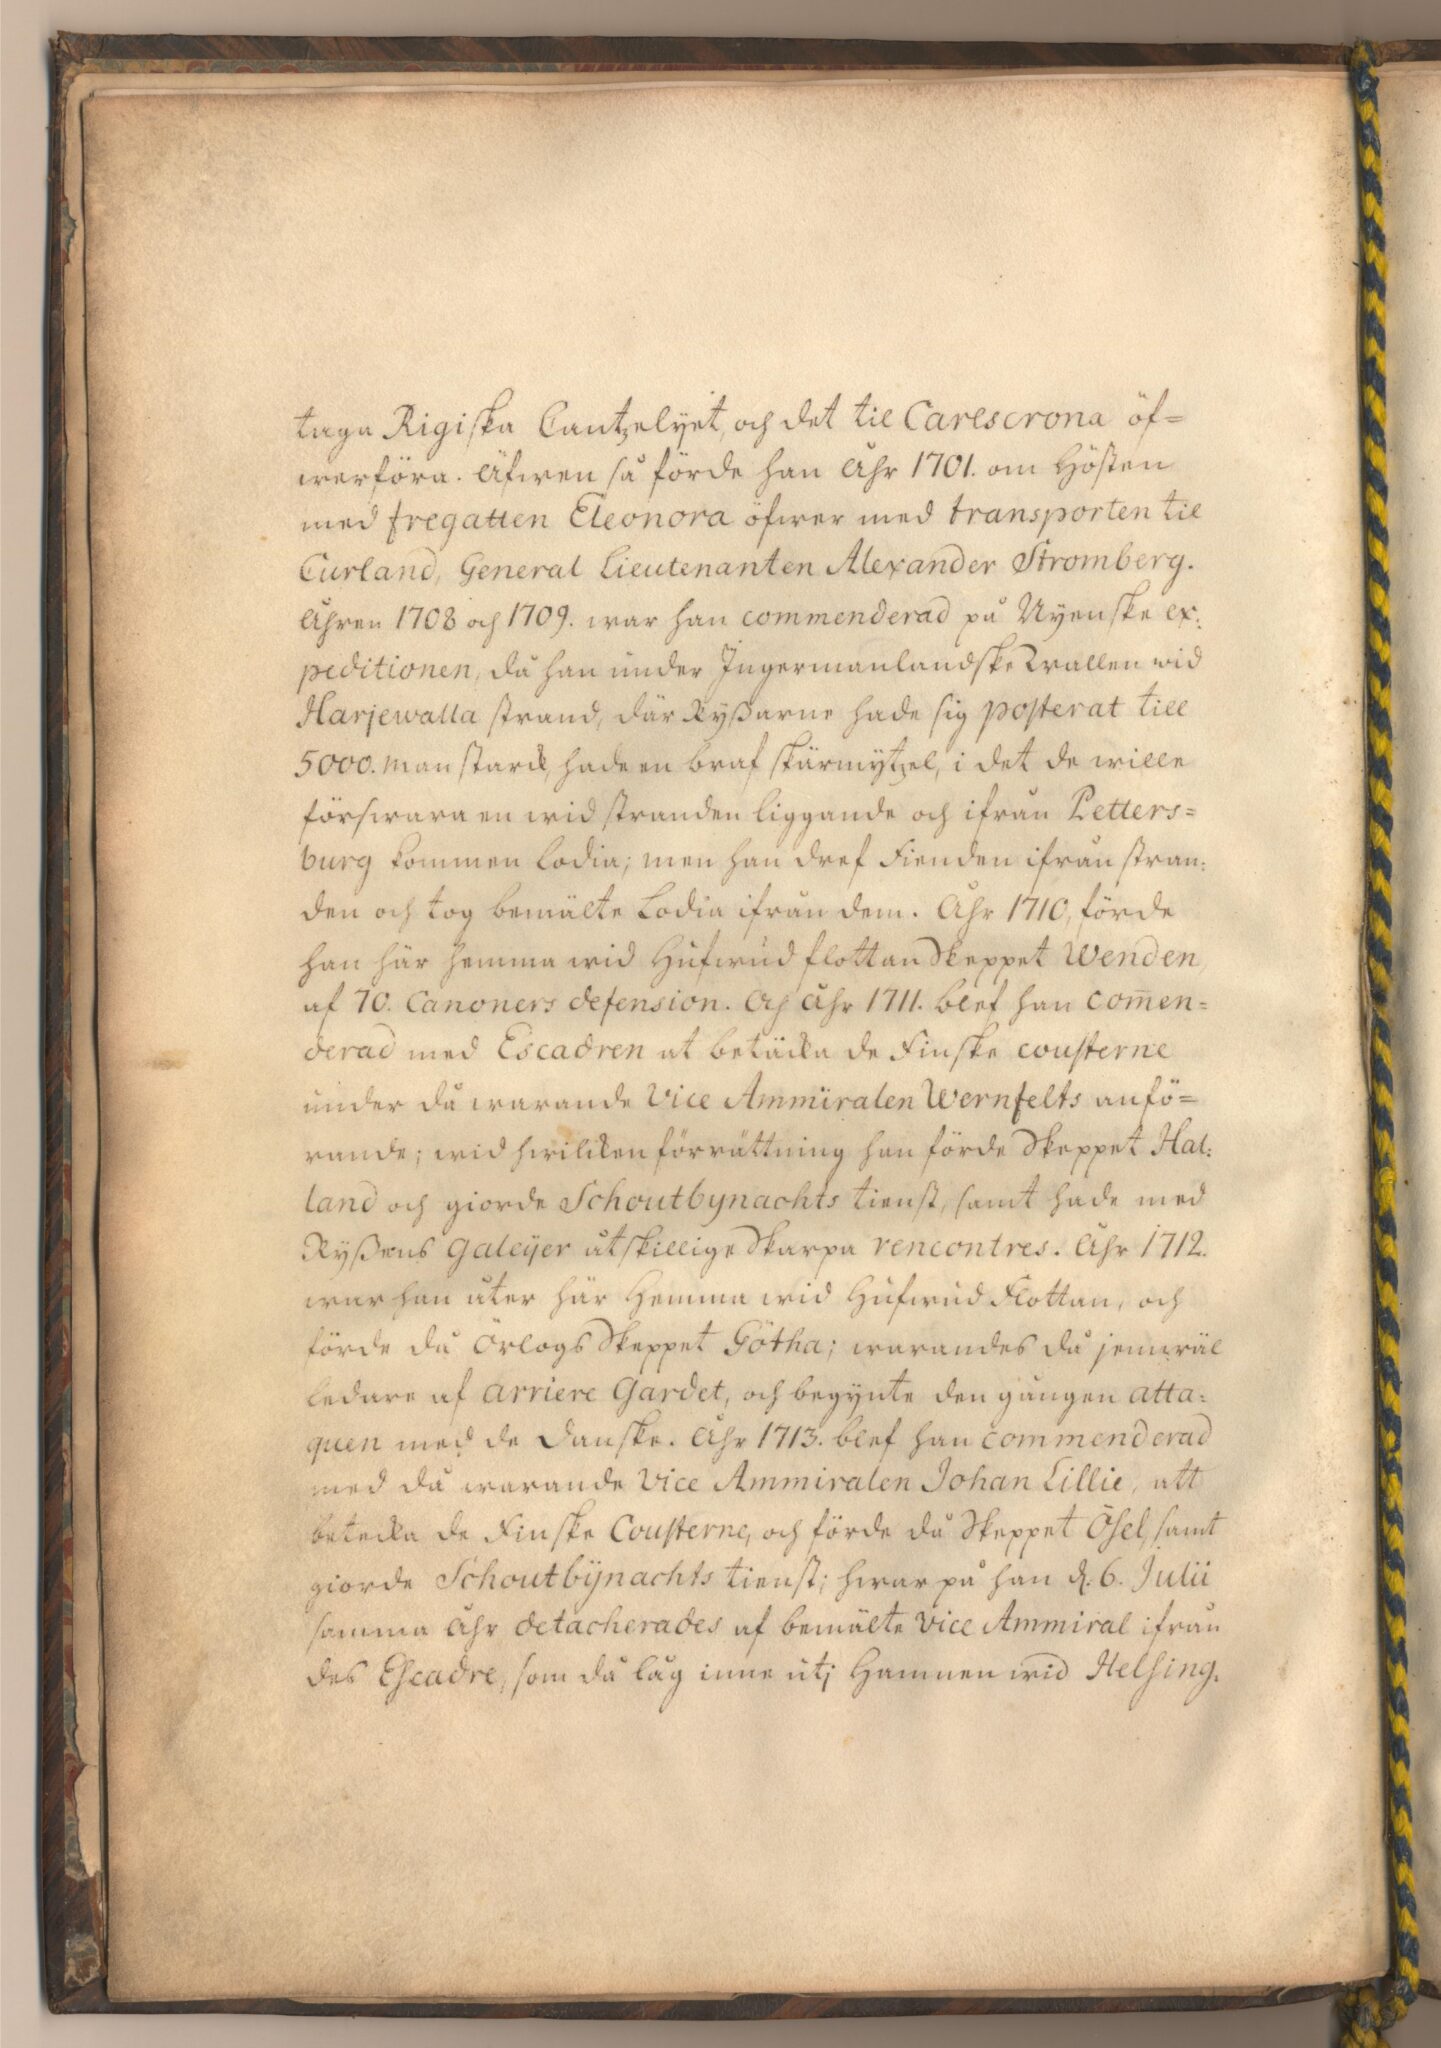 taga Rigiska Cantzelyet, och det til Carlscrona öf=
werföra. Äfwen så förde han Åhr 1701. om Hösten
med fregatten Eleonora öfwer med transporten til
Curland, General Lieutenanten Alexander Stromberg.
Åhren 1708 och 1709. war han commenderad på Nyenske ex:
peditionen, då han under Ingermanlandske wallen wid
Harjewalla strand, där Ryßarne hade sig posterat till
5000. man starck, hade en braf skärmytzel, i det de wille
förswara en wid stranden liggande och ifrån Petters=
burg kommen Lodia; men han dref Fienden ifrån stran:
den och tog bemälte Lodia ifrån dem. Åhr 1710, förde
han här hemma wid Hufwud flottan Skeppet Wenden
af 70. Canoners defension. Och Åhr 1711. blef han com̅en=
derad med Escadren at betäcka de Finske cousterne
under då warande Vice Ammiralen Wernfelts anfö=
rande; wid hwilcken förrättning han förde Skeppet Hal:
land och giorde Schoutbynachts tienst, samt hade med
Ryßens Galeijer åtskillige Skarpa rencontres. Åhr 1712.
war han åter här Hemma wid Hufwud Flottan, och
förde då Örlogs Skeppet Götha; warandes då jemwäl
ledare af arriere Gardet, och begynte den gången atta:
quen med de Danske. Åhr 1713. blef han commenderad
med då warande Vice Ammiralen Johan Lillie, att
betecka de Finske Cousterne, och förde då Skeppet Ösel, samt
giorde Schoutbijnachts tienst; hwar på han d. 6. Julii
samma Åhr detacherades af bemälte Vice Ammiral ifrån
des Escadre, som då låg inne uti Hamnen wid Helsing: